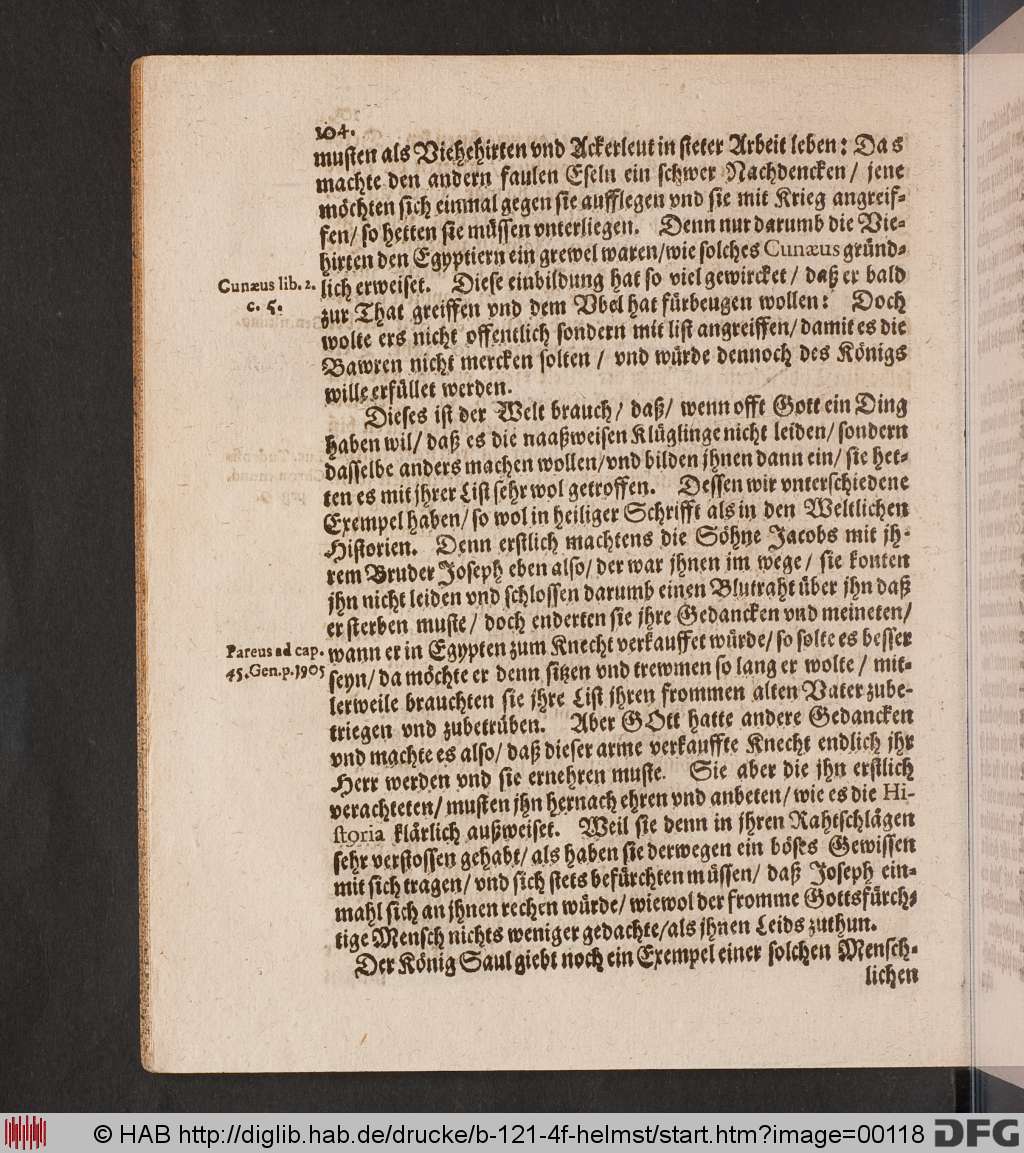 104.
musten als Viehehirten vnd Ackerleut in steter Arbeit leben: Das
machte den andern faulen Eseln ein schwer Nachdencken/ jene
möchten sich einmal gegen sie aufflegen vnd sie mit Krieg angreif-
fen/ so hetten sie müssen vnterliegen. Denn nur darumb die Vie-
hirten den Egyptiern ein grewel waren/wie solches Cunæus gründ-
Cunæus lib. 2.
c. 5.
lich erweiset. Diese einbildung hat so viel gewircket/ daß er bald
zur That greiffen vnd dem Vbel hat fürbeugen wollen: Doch
wolte ers nicht offentlich sondern mit list angreiffen/ damit es die
Bawren nicht mercken solten/ vnd würde dennoch des Königs
wille erfüllet werden.
Dieses ist der Welt brauch/ daß/ wenn offt Gott ein Ding
haben wil/ daß es die naaßweisen Klüglinge nicht leiden/ sondern
dasselbe anders machen wollen/vnd bilden jhnen dann ein/ sie het-
ten es mit jhrer List sehr wol getroffen. Dessen wir vnterschiedene
Exempel haben/ so wol in heiliger Schrifft als in den Weltlichen
Historien. Denn erstlich machtens die Söhne Jacobs mit jh-
rem Bruder Joseph eben also/ der war jhnen im wege/ sie konten
jhn nicht leiden vnd schlossen darumb einen Blutraht über jhn daß
er sterben muste/ doch enderten sie jhre Gedancken vnd meineten/
Pareus ad cap.
45. Gen. p. 1905
wann er in Egypten zum Knecht verkauffet würde/ so solte es besser
seyn/ da möchte er denn sitzen vnd trewmen so lang er wolte/ mit-
lerweile brauchten sie jhre List jhren frommen alten Vater zube-
triegen vnd zubetrüben. Aber GOtt hatte andere Gedancken
vnd machte es also/ daß dieser arme verkauffte Knecht endlich jhr
Herr werden vnd sie ernehren muste. Sie aber die jhn erstlich
verachteten/ musten jhn hernach ehren vnd anbeten/ wie es die Hi-
storia klärlich außweiset. Weil sie denn in jhren Rahtschlägen
sehr verstossen gehabt/ als haben sie derwegen ein böses Gewissen
mit sich tragen/ vnd sich stets befürchten müssen/ daß Joseph ein-
mahl sich an jhnen rechen würde/ wiewol der fromme Gottsfürch-
tige Mensch nichts weniger gedachte/als jhnen Leids zuthun.
Der König Saul giebt noch ein Exempel einer solchen Mensch-
lichen
© HAB http://diglib.hab.de/drucke/b-121-4f-helmst/start.htm?image=00118
DFG